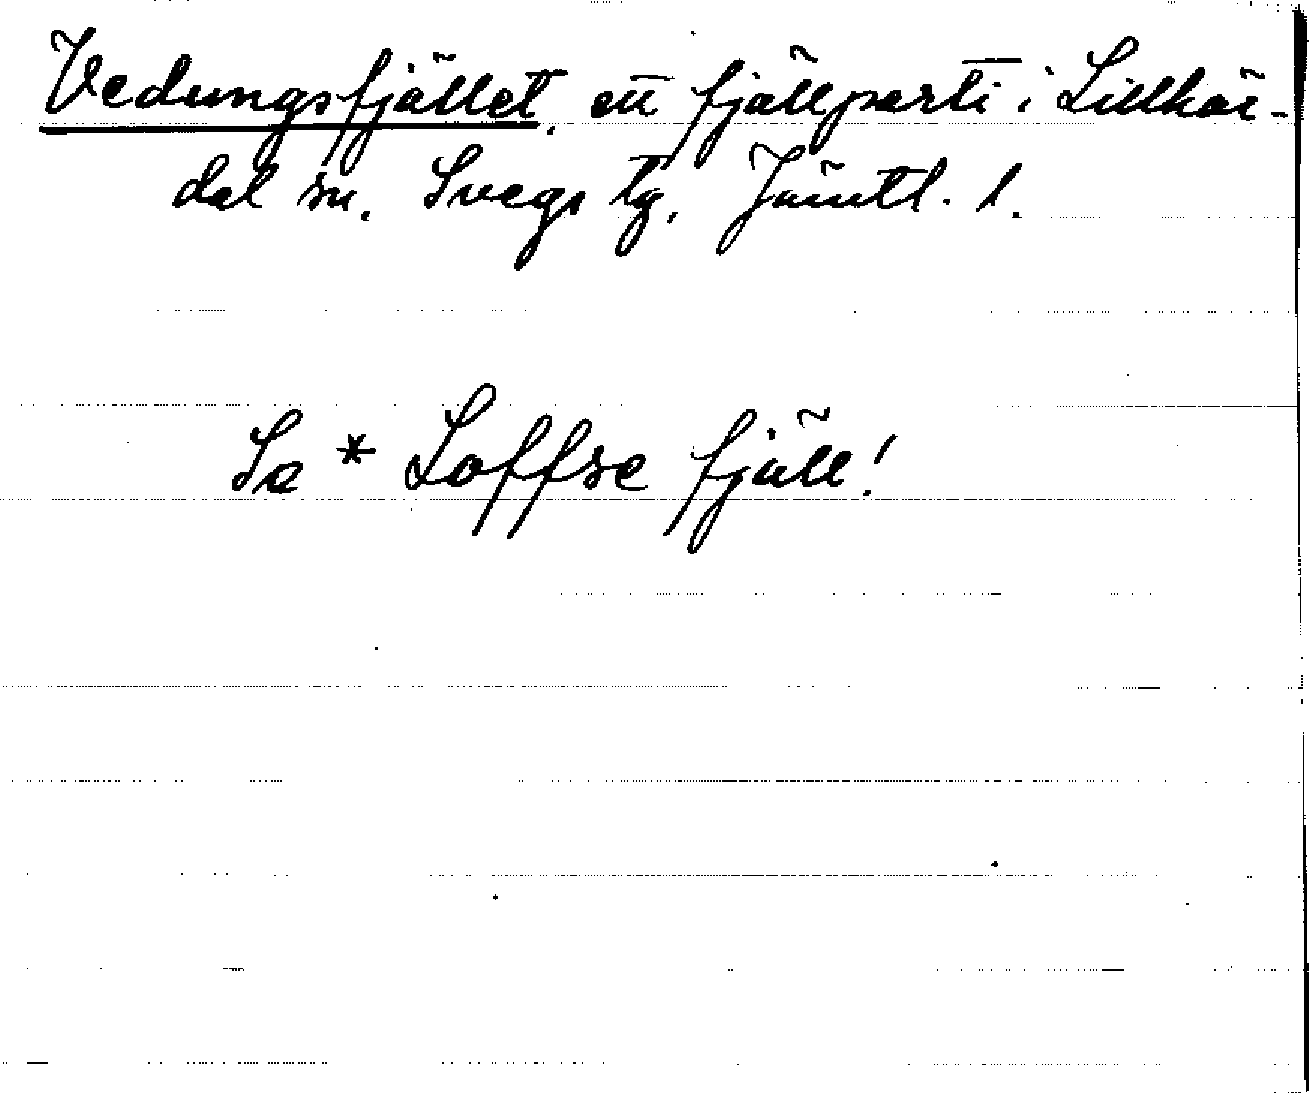 Vedungsfjället, ett fjällparti i Lillhär-
dal sn. Svegs tg, Jämtl. l.
Se * Loffse fjäll!